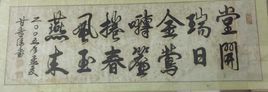 堂開
瑞日
金鶯
囀簾
捲春
風玉
燕来
二〇〇五年